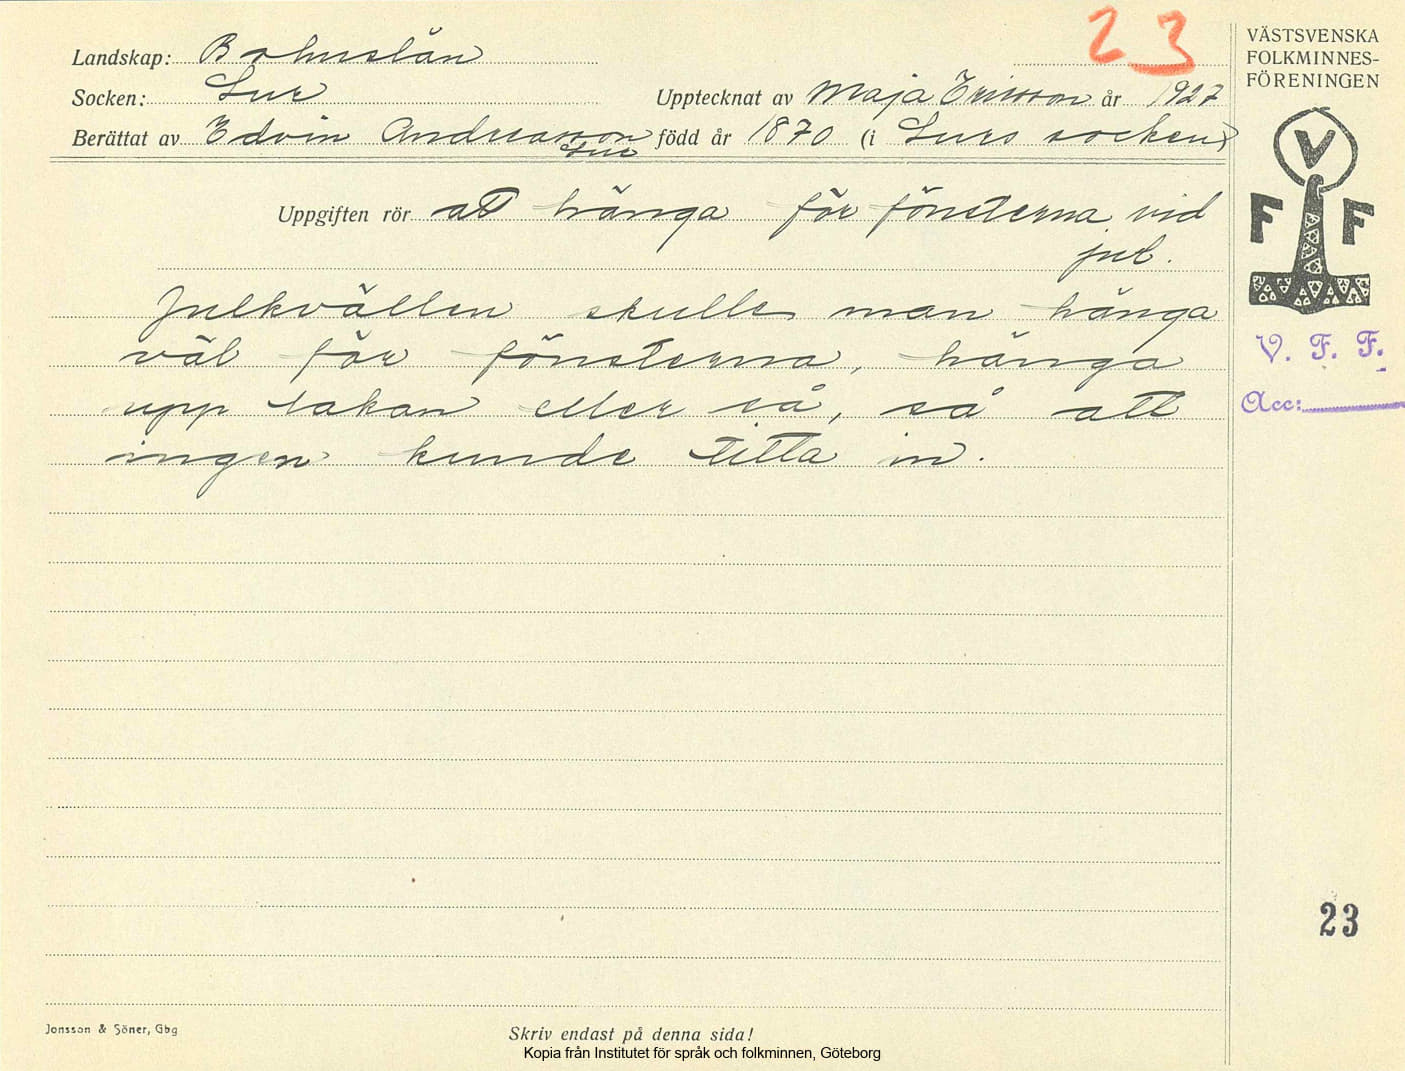 23
VÄSTSVENSKA
FOLKMINNES-
FÖRENINGEN
Landskap: Bohuslän
Socken: Lur
Upptecknat av Maja Ericsson år 1927
Berättat av Edvin Andreasson född år 1870 (i Lurs socken)
Lur
V
F F
Uppgiften rör att hänga för fönsterna vid
jul.
Julkvällen skulle man hänga
väl för fönsterna, hänga
upp lakan eller så, så att
ingen kunde titta in.
V. F. F.
Acc:
23
Jonsson & Söner, Gbg
Skriv endast på denna sida!
Kopia från Institutet för språk och folkminnen, Göteborg